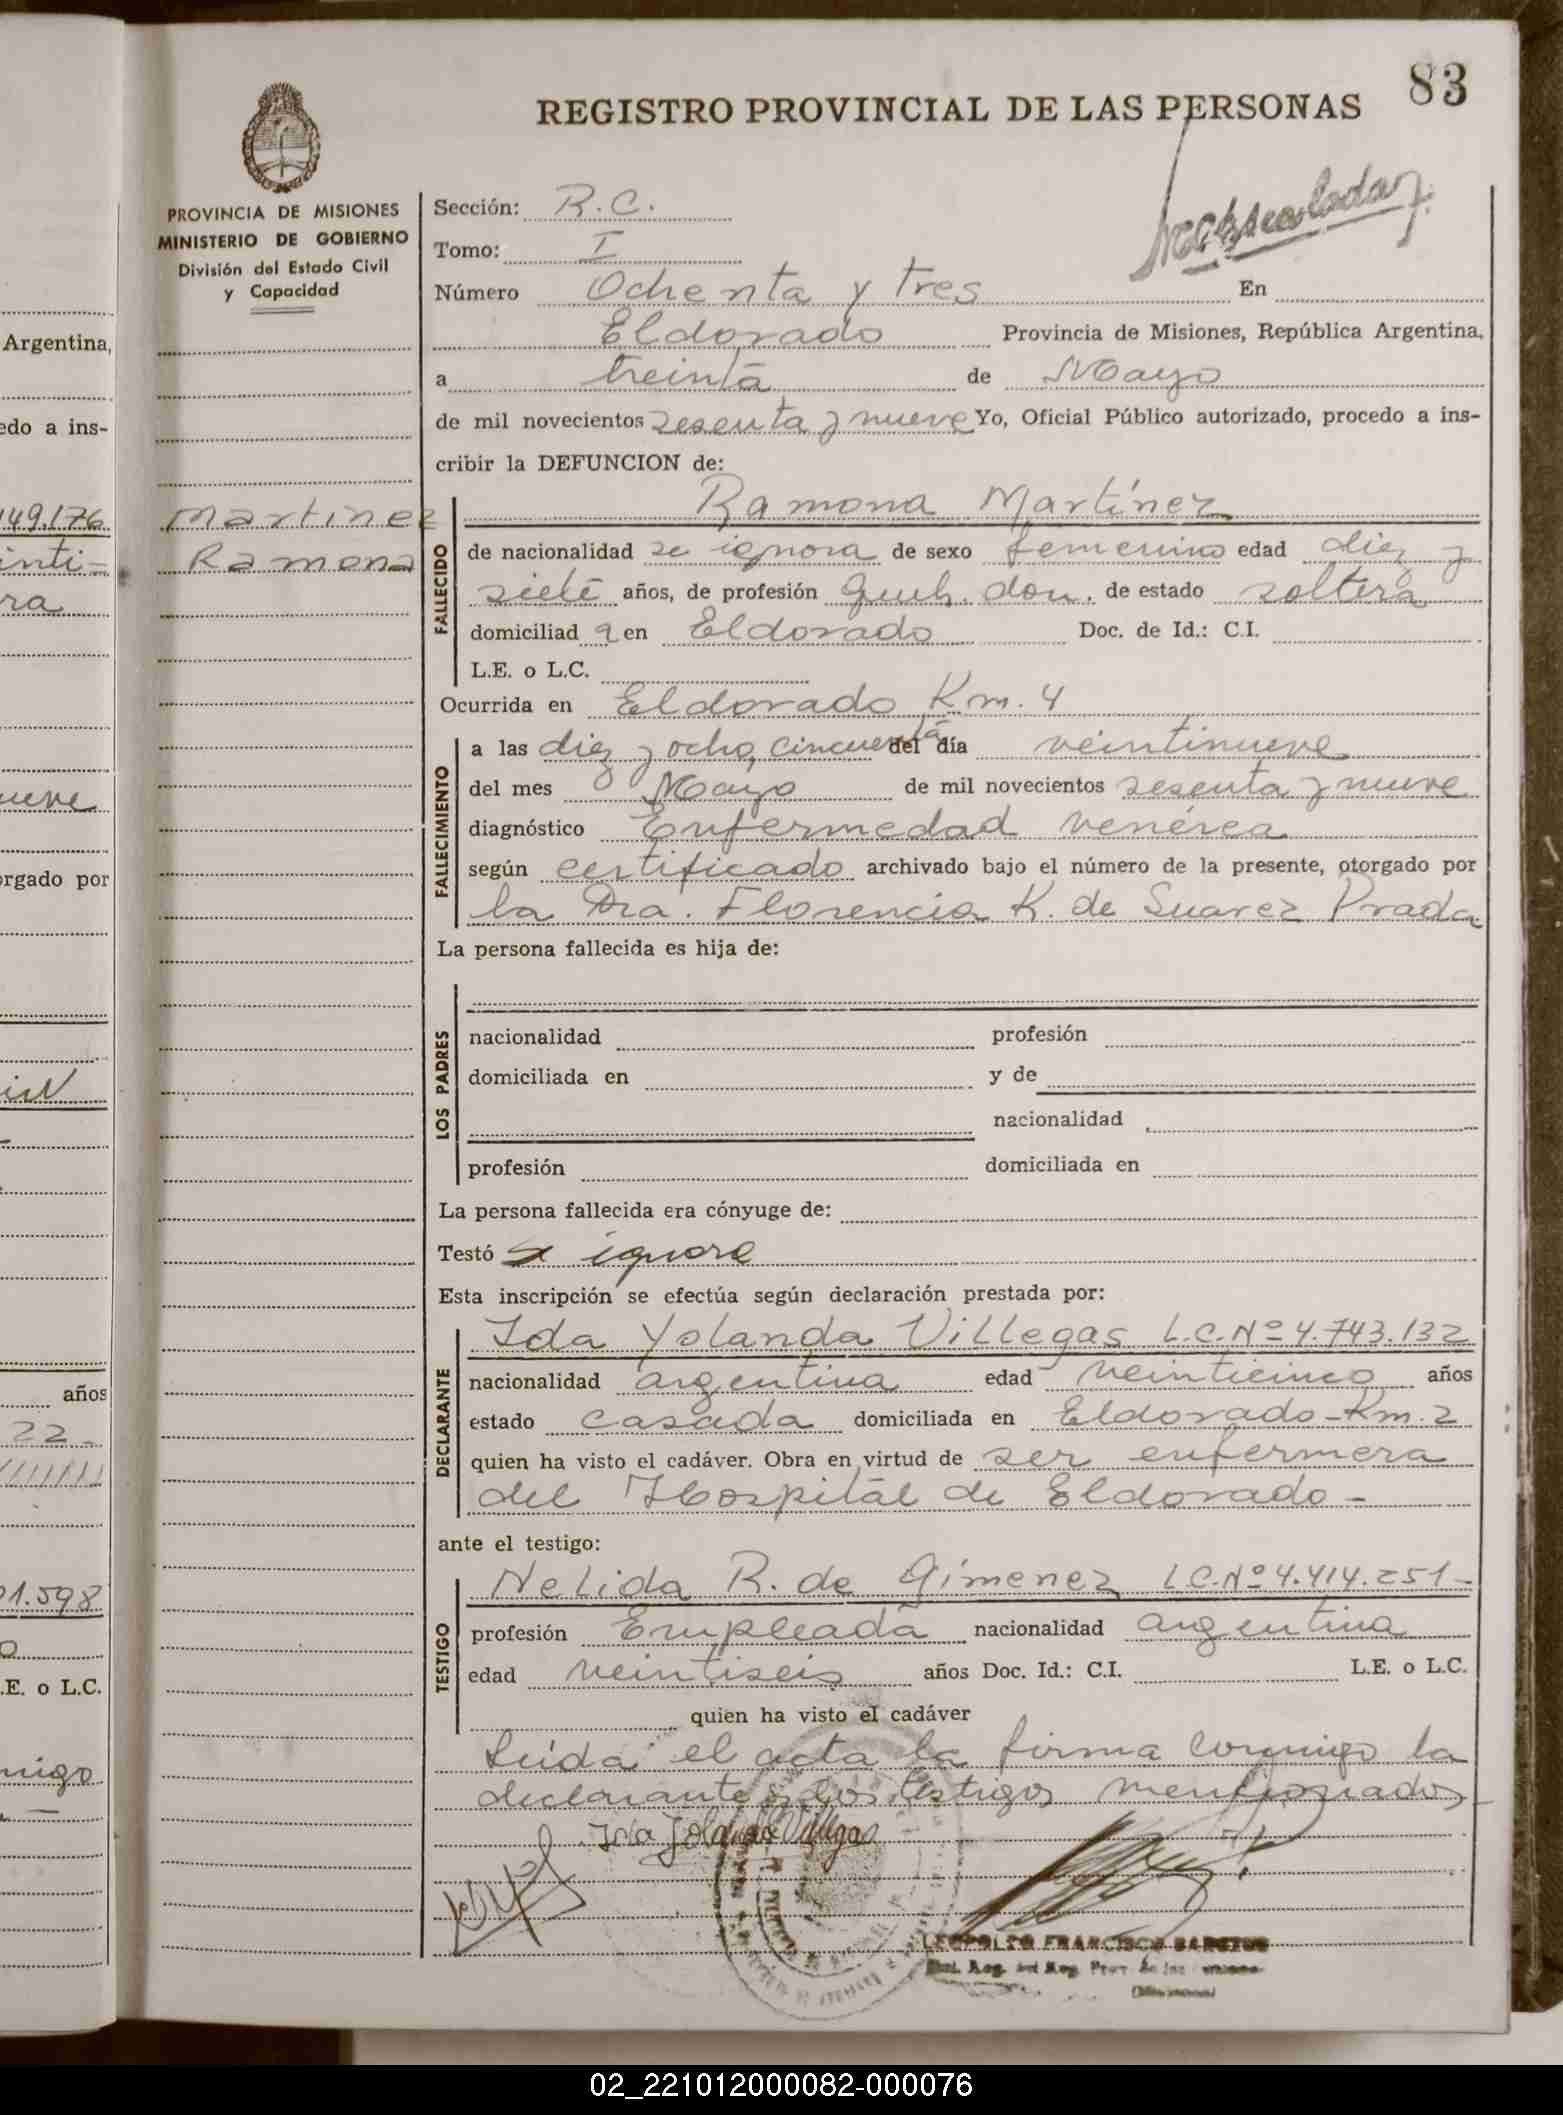 83
REGISTRO PROVINCIAL DE LAS PERSONAS
PROVINCIA DE MISIONES
MINISTERIO DE GOBIERNO
División del Estado Civil
y Capacidad
Martinez
Ramona
Sección: R.C.
Tomo: I
Número Ochenta y tres En
Eldorado Provincia de Misiones, República Argentina,
a treinta de Mayo
de mil novecientos sesenta y nueve Yo, Oficial Público autorizado, procedo a ins-
cribir la DEFUNCION de:
FALLECIDO
Ramona Martínez
de nacionalidad se ignora de sexo femenino edad diez y
siete años, de profesión queh. dom. de estado soltera
domiciliad a en Eldorado Doc. de Id.: C.I.
L.E. o L.C.
Ocurrida en Eldorado Km. 4
FALLECIMIENTO
a las diez y ocho, cincuenta del día veintinueve
del mes Mayo de mil novecientos sesenta y nueve
diagnóstico Enfermedad venérea
según certificado archivado bajo el número de la presente, otorgado por
la Dra. Florencia K. de Suarez Prada
La persona fallecida es hija de:
LOS PADRES
nacionalidad profesión
domiciliada en y de
nacionalidad
profesión domiciliada en
La persona fallecida era cónyuge de:
Testó se ignora
Esta inscripción se efectúa según declaración prestada por:
DECLARANTE
Ida Yolanda Villegas L.C.Nº 4.743.132
nacionalidad argentina edad veinticinco años
estado casada domiciliada en Eldorado-Km.2
quien ha visto el cadáver. Obra en virtud de ser enfermera
del Hospital de Eldorado -
ante el testigo:
TESTIGO
Nelida R. de Gimenez L.C.Nº 4.414.251-
profesión Empleada nacionalidad argentina
edad veintiseis años Doc. Id.: C.I. L.E. o L.C.
quien ha visto el cadáver
Leída el acta la firma conmigo la
declarante y los testigos mencionados
Ida Yolanda Villegas
LEOPOLDO FRANCISCO
Argentina,
edo a ins-
149.176
inti-
ra
ueve
orgado por
años
22-
01.598
.E. o L.C.
migo
02_221012000082-000076